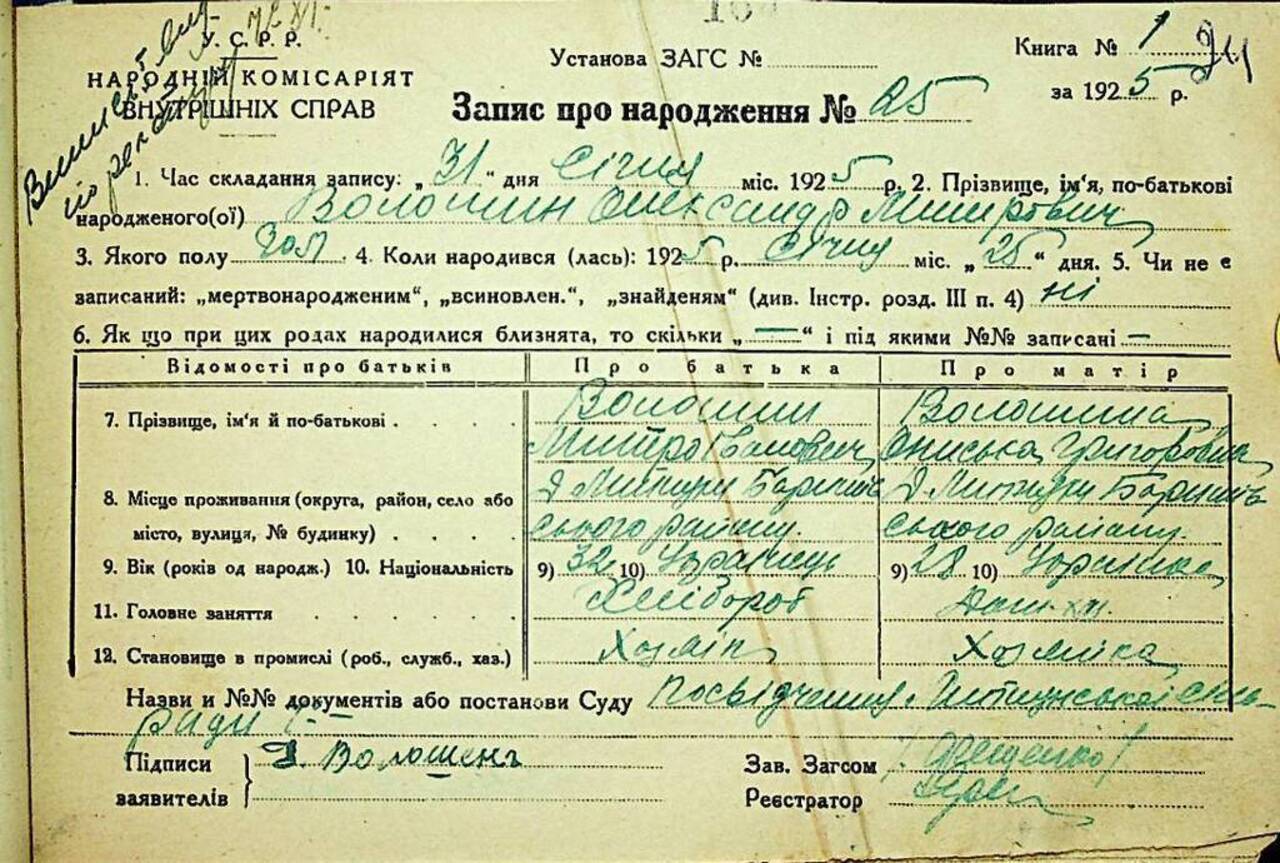 У. С. Р. Р.
НАРОДНІЙ КОМІСАРІЯТ
ВНУТРІШНІХ СПРАВ
Установа ЗАГС №
Книга № 1
за 1925 р.
24
Запис про народження № 25
1. Час складання запису: „31“ дня Січня міс. 1925 р. 2. Прізвище, ім'я, по-батькові
народженого(ої) Волошин Олександр Митрович
3. Якого полу чол. 4. Коли народився (лась): 1925 р. Січня міс. „25“ дня. 5. Чи не є
записаний: „мертвонародженим“, „всиновлен.“, „знайденям“ (див. Інстр. розд. III п. 4) ні
6. Як що при цих родах народилися близнята, то скільки „—“ і під якими №№ записані —
Відомості про батьків Про батька Про матір
7. Прізвище, ім'я й по-батькові Волошин Волошина
Митро Іванович Ониська Григоровна
8. Місце проживання (округа, район, село або
місто, вулиця, № будинку) ського району. ського району.
9. Вік (років од народж.) 10. Національність 9) 32 10) Українець 9) 28 10) Українка
11. Головне заняття Хлібороб
12. Становище в промислі (роб., служб., хаз.) Хозяїн Хозяїка
Назви и №№ документів або постанови Суду Посвідчення
ради
Підписи
заявителів
Волошенъ
Зав. Загсом
Реєстратор